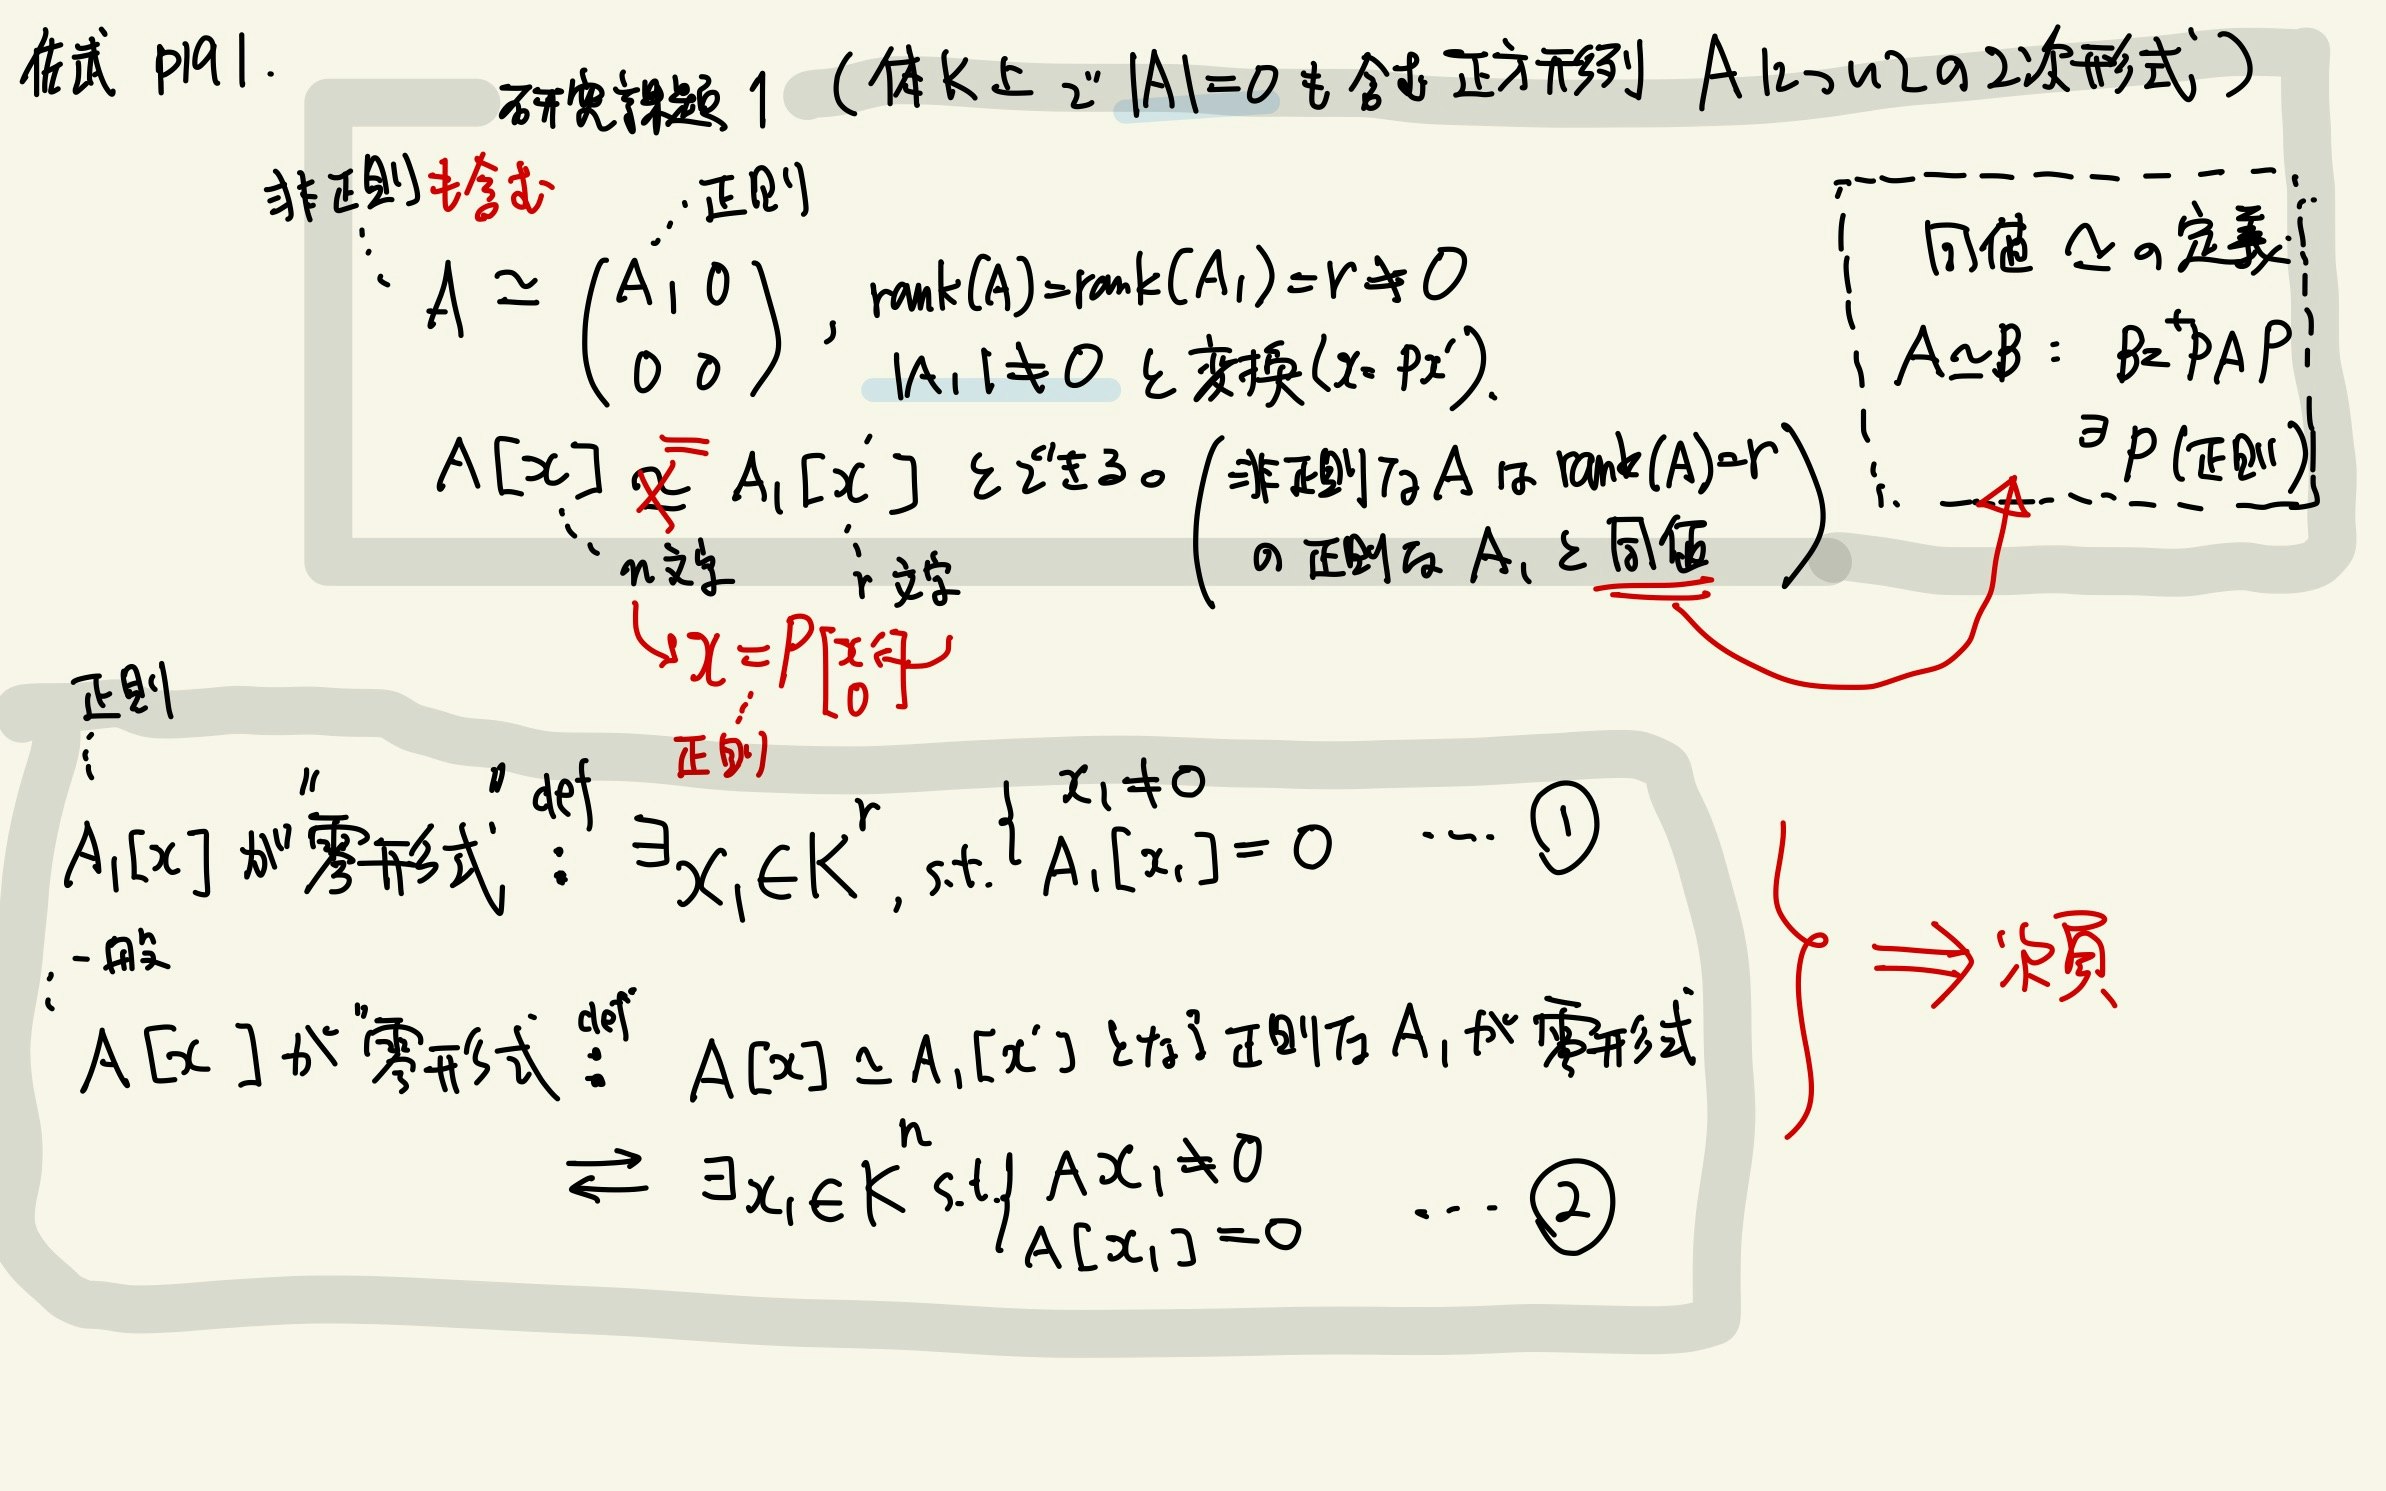 佐武 p191.
研究課題 1 (体K上で |A|=0 も含む 正方形列 A についての2次形式)
非正則も含む 正則
A ≃ (A₁ 0 / 0 0), rank(A)=rank(A₁)=r≠0
|A₁|≠0 と変換(x=Px').
A[x] = A₁[x'] とできる。(非正則な A は rank(A)=r
の正則な A₁ と同値)
n文字 r文字
x = P[x' / 0]
正則
同値 ≃ の定義
A≃B : B=ᵗPAP
∃P(正則)
正則
A₁[x] が "零形式" def : ∃x₁∈Kʳ, s.t. { x₁≠0
A₁[x₁]=0 … ①
一般
A[x] が "零形式" def : A[x] ≃ A₁[x'] となる 正則な A₁ が 零形式
⇄ ∃x₁∈Kⁿ s.t. { Ax₁≠0
A[x₁]=0 … ②
⇒ 次頁